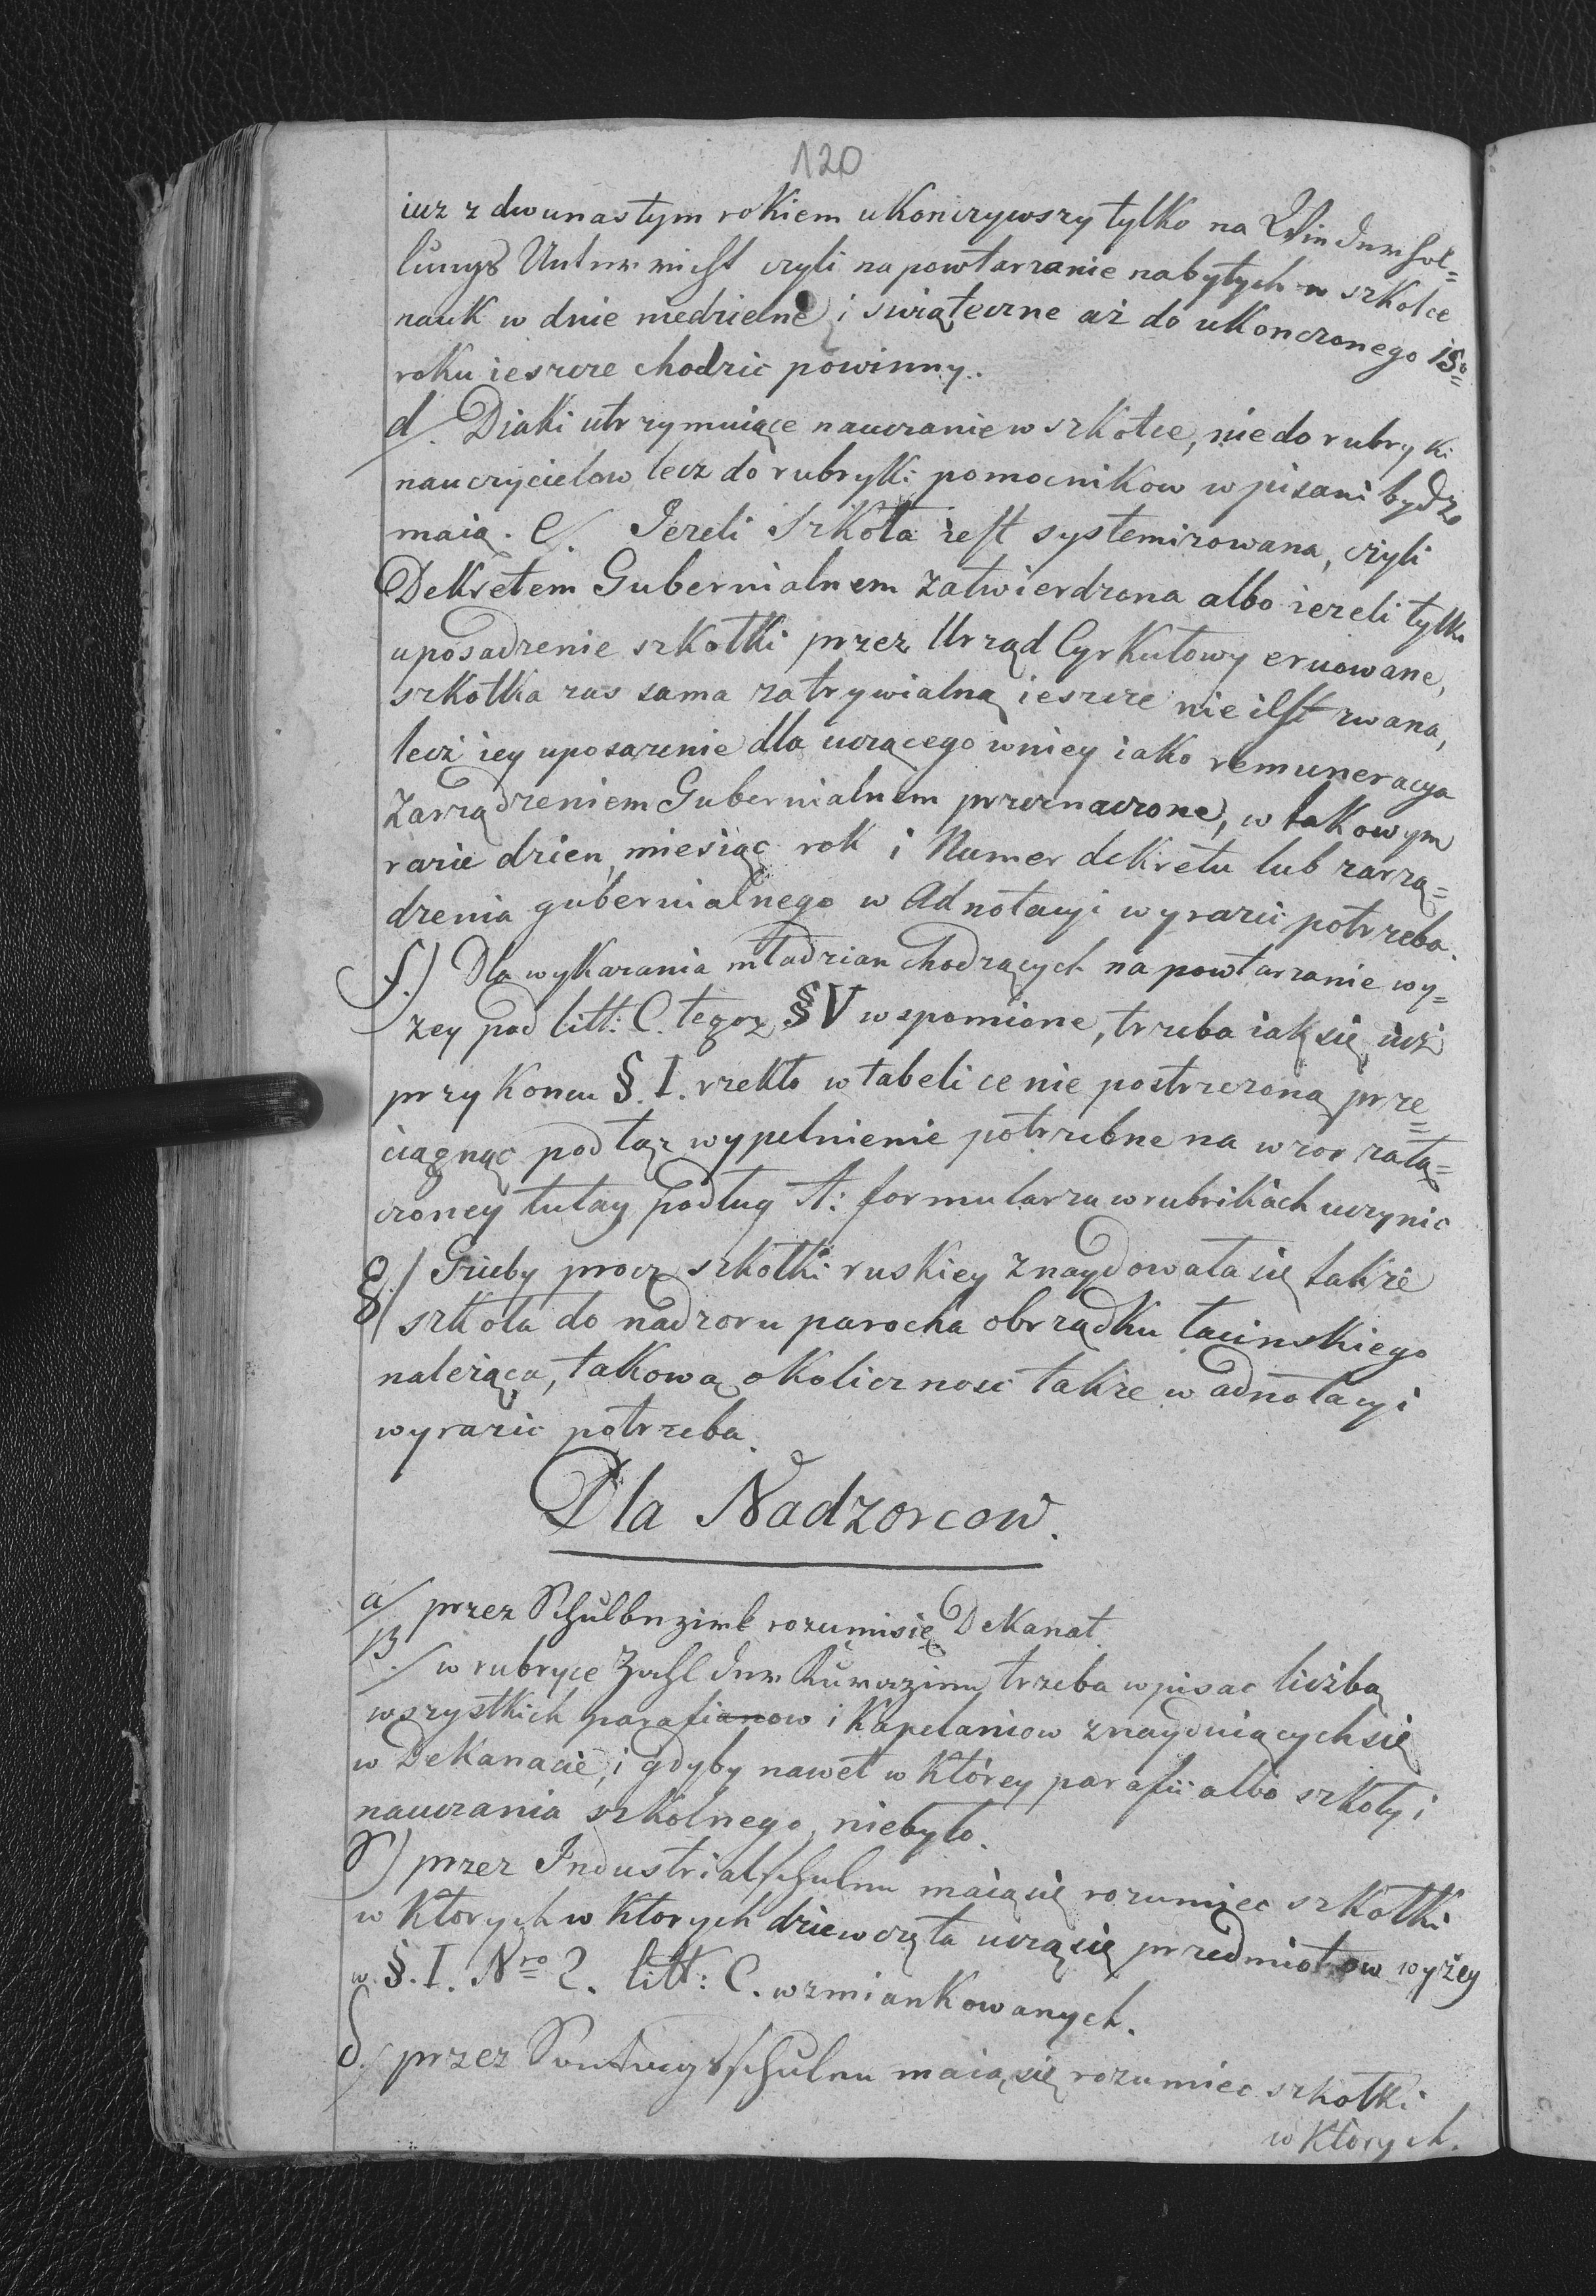 120
iuz z dwunastym rokiem ukonczywszy tylko na Wiederhol=
lungs Unterricht czyli na powtarzanie nabytych w szkolce
nauk w dnie niedzielne i swiąteczne aż do ukonczonego 15go
roku ieszcze chodzic powinny.
d/. Diaki utrzymuiące nauczanie w szkołce, nie do rubryki
nauczycielow lecz do rubryki pomocnikow wpisani bydz
maią. e/. Iezeli Szkoła iest systemizowana, czyli
Dekretem Gubernialnem zatwierdzona albo iezeli tylko
uposadzenie szkołki przez Urząd Cyrkułowy eruowane,
szkołka zas sama za trywialną ieszcze nie iest zwana,
lecz iey uposazenie dla uczącego w niey iako remuneracya
Zarządzeniem Gubernialnem przeznaczone, w takowym
razie dzien, miesiąc rok i Numer dekretu lub zarzą=
dzenia gubernialnego w Adnotacyi wyrazic potrzeba.
f.) Dla wykazania mładzian chodzących na powtarzanie wy=
zey pod litt: C. tegoz § V wspomione, trzeba iak się iuż
przy koncu §. I. rzekło w tabelice nie postrzezoną prze=
ciągnąc pod tąz wypelnienie potrzebne na wzor załą=
czoney tutay podług A: formularza w rubrikach uczynic
g/ Gdzieby procz szkołki ruskiey znaydowała się takze
szkoła do nadzoru parocha obrządku łacinskiego
należąca, takową okolicznosc takze w adnotacyi
wyrazic potrzeba.
Dla Nadzorcow.
a/ przez Schulbezirk rozumi się Dekanat.
B./ w rubryce Zahl der Kurazien trzeba wpisac liczbą
wszystkich parafianow i Kapelaniow znayduiących się
w Dekanacie, i gdyby nawet w którey parafii albo szkoły i
nauczania szkolnego niebyło.
przez Industrialschulen maią się rozumiec szkołki
w ktorych w ktorych dziewczęta uczą się przedmiotow wyżey
w §. I. Nro 2. litt: C. wzmiankowanych.
δ./ przez schulen maią się rozumiec szkołki
w ktorych.